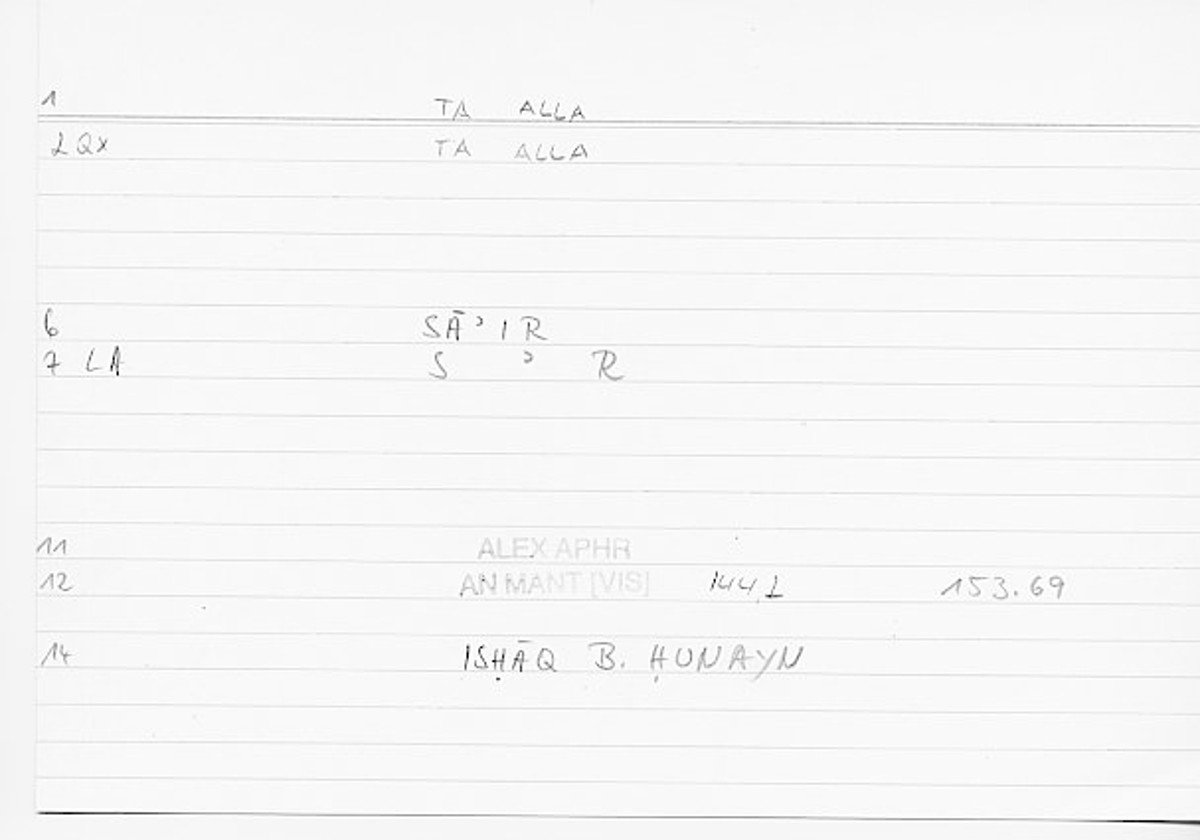 1 TA ALLA
2 QX TA ALLA
6 SĀʾIR
7 LA S ʾ R
11 ALEX APHR
12 AN MANT [VIS] 144,1 153.69
14 ISḤĀQ B. ḤUNAYN